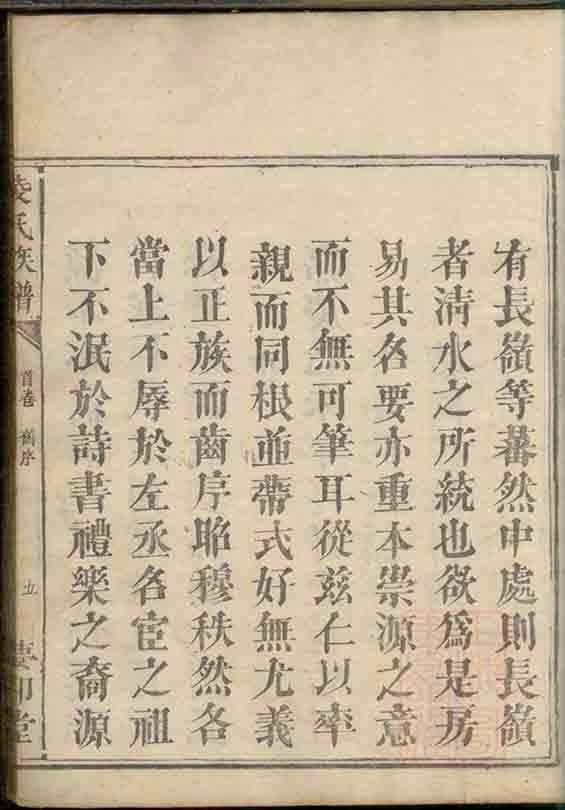 有長嶺等蕃然中處則長嶺
者清水之所統也欲爲是房
易其名要亦重本崇源之意
而不無可筆耳從茲仁以率
親而同根並蒂式好無尤義
以正族而齒序昭穆秩然各
當上不辱於左丞名宦之祖
下不泯於詩書禮樂之裔源
凌氏族譜
首卷 舊序
五